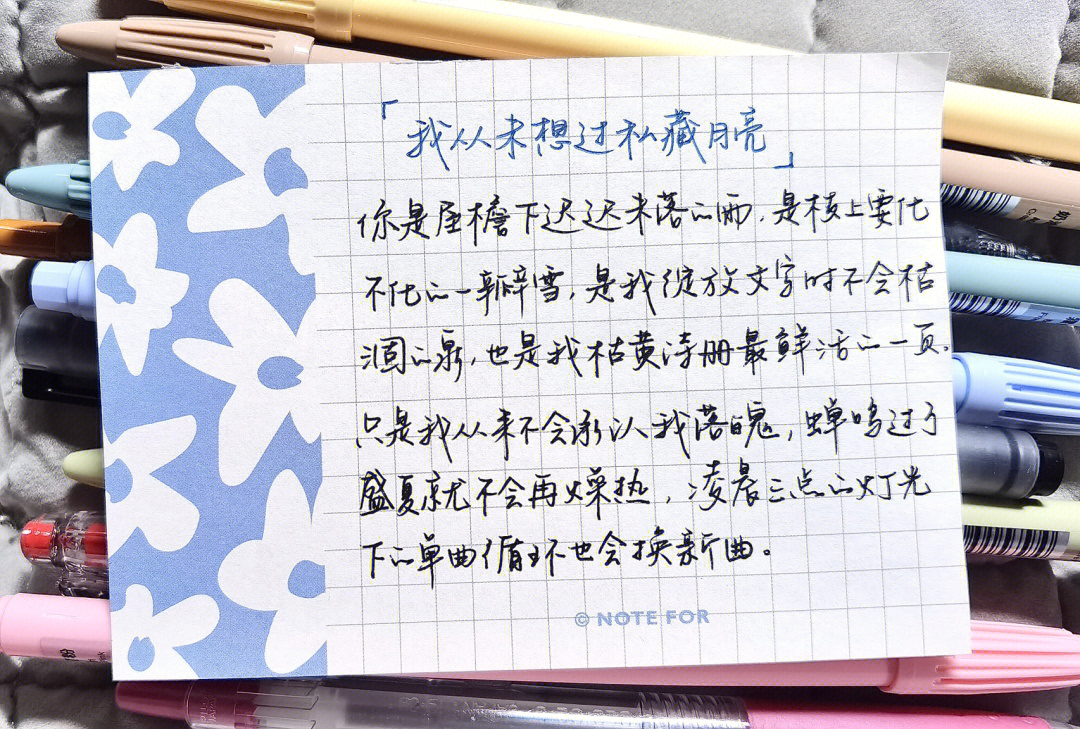 「我从未想过私藏月亮」
你是屋檐下迟迟未落的雨，是枝上要化
不化的一瓣雪，是我绽放文字时不会枯
涸的泉，也是我枯黄诗册最鲜活的一页。
只是我从来不会承认我落魄，蝉鸣过了
盛夏就不会再燥热，凌晨三点的灯光
下的单曲循环也会换新曲。
© NOTE FOR